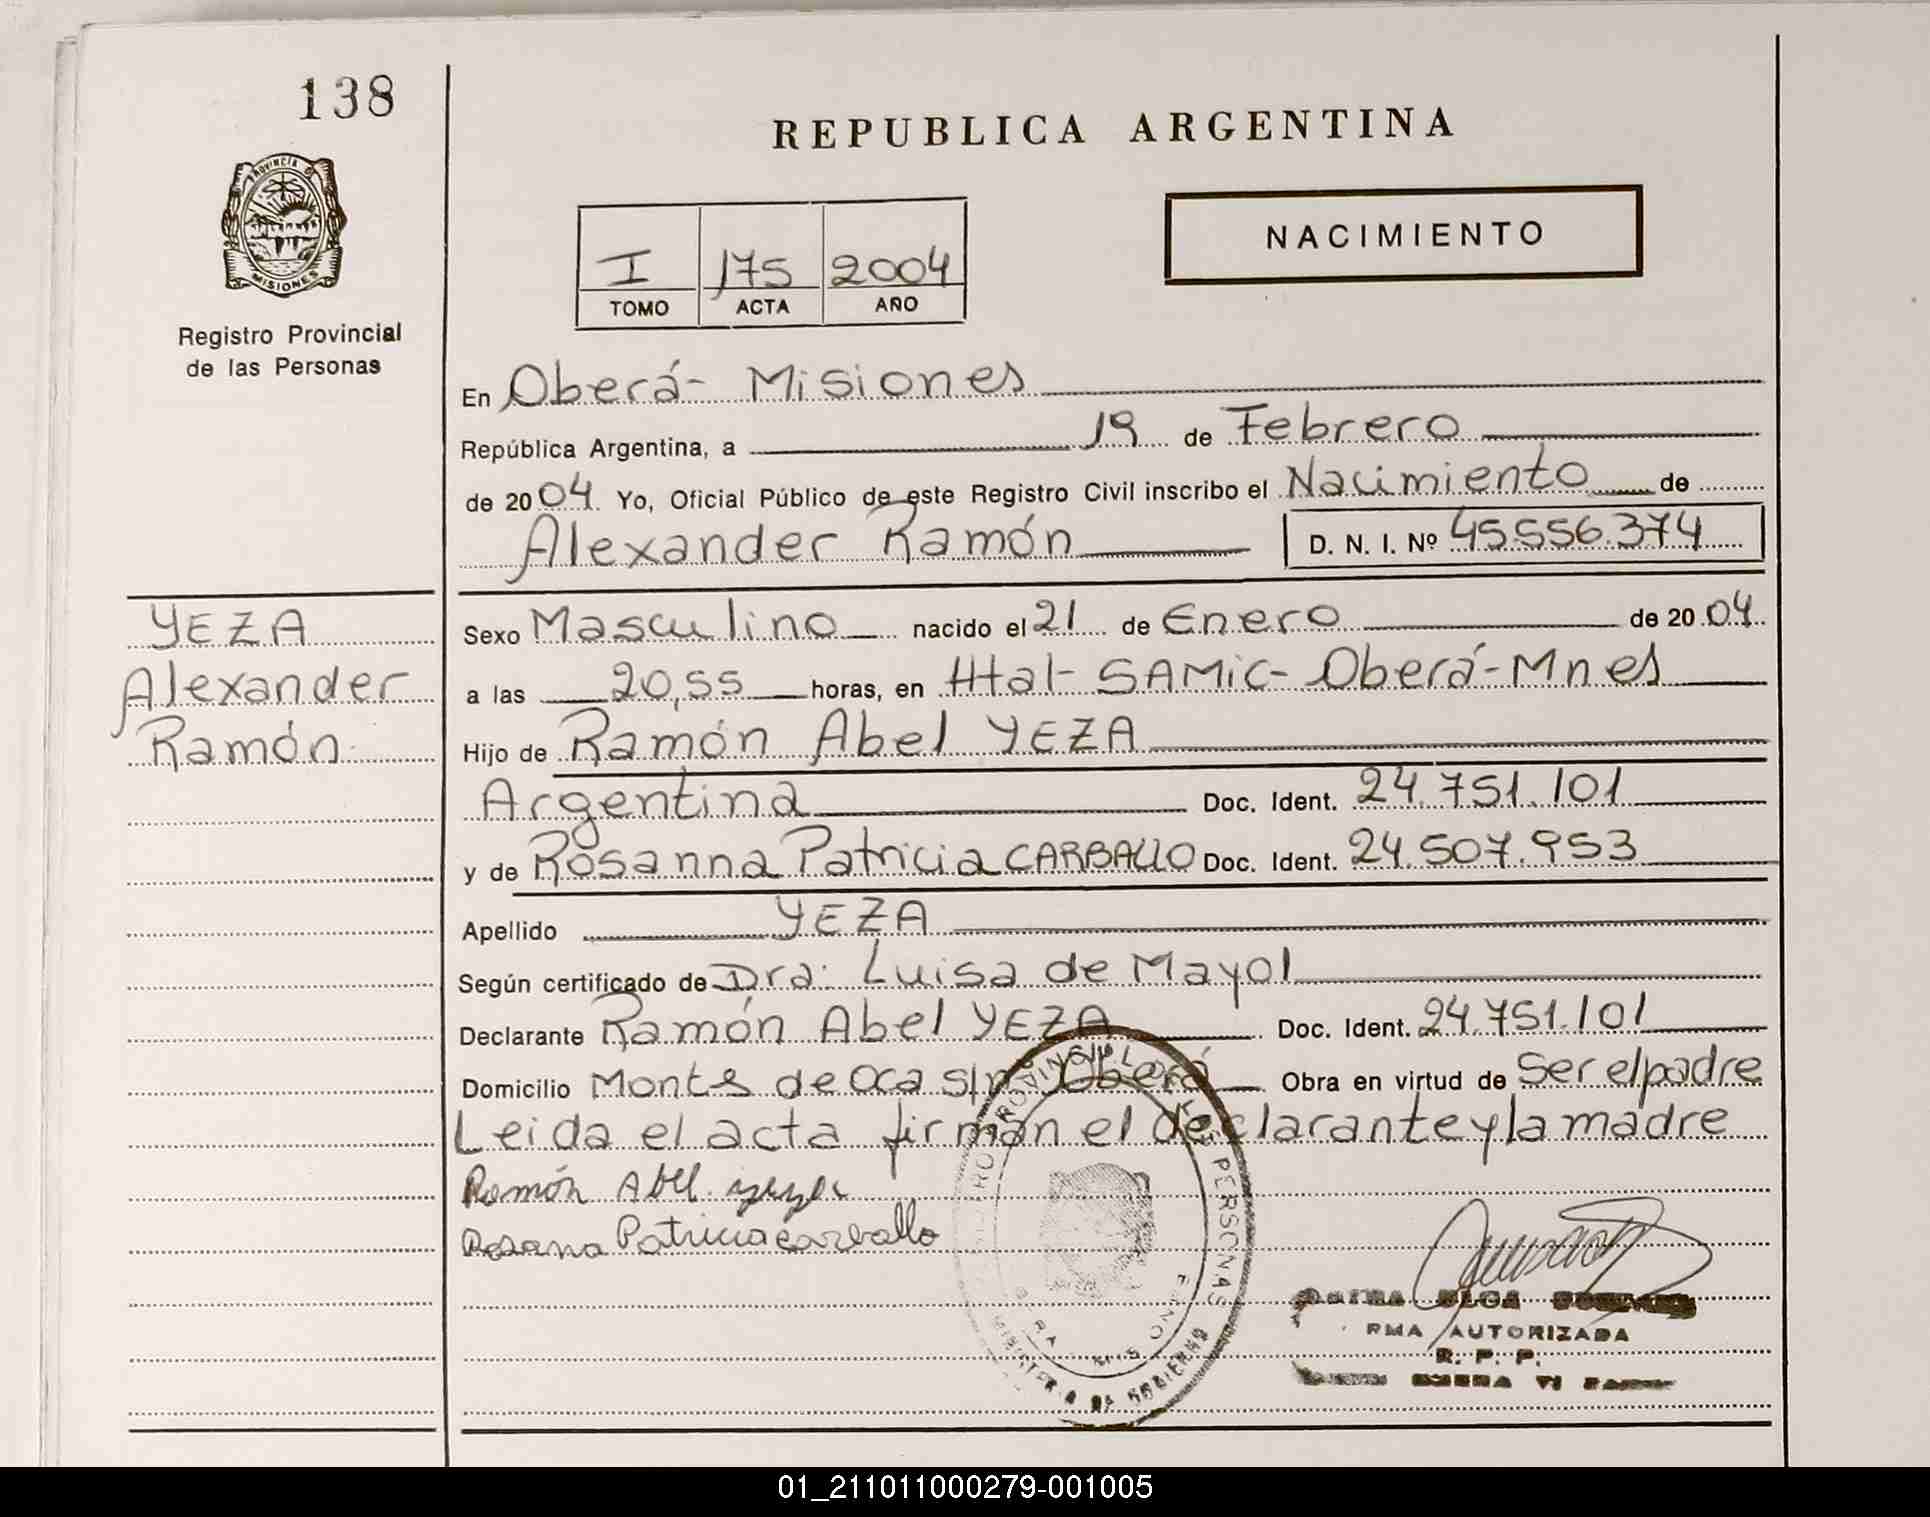 138
REPUBLICA ARGENTINA
PROVINCIA DE
MISIONES
Registro Provincial
de las Personas
I 175 2004
TOMO ACTA AÑO
NACIMIENTO
En Oberá- Misiones
República Argentina, a 19 de Febrero
de 2004. Yo, Oficial Público de este Registro Civil inscribo el Nacimiento de
Alexander Ramón D. N. I. Nº 45.556.374
YEZA
Alexander
Ramón
Sexo Masculino nacido el 21 de Enero de 2004.
a las 20,55 horas, en Htal- SAMic- Oberá-Mnes
Hijo de Ramón Abel YEZA
Argentina Doc. Ident. 24.751.101
y de Rosanna Patricia CARBALLO Doc. Ident. 24.507.953
Apellido YEZA
Según certificado de Dra: Luisa de Mayol
Declarante Ramón Abel YEZA Doc. Ident. 24.751.101
Domicilio Montes de Oca s/nº Oberá Obra en virtud de Ser el padre
Leida el acta firman el declarante y la madre
Ramón Abel
Rosana Patricia Carballo
PERSONAS
MINISTERIO DE GOBIERNO
RMA AUTORIZADA
R. P. P.
01_211011000279-001005